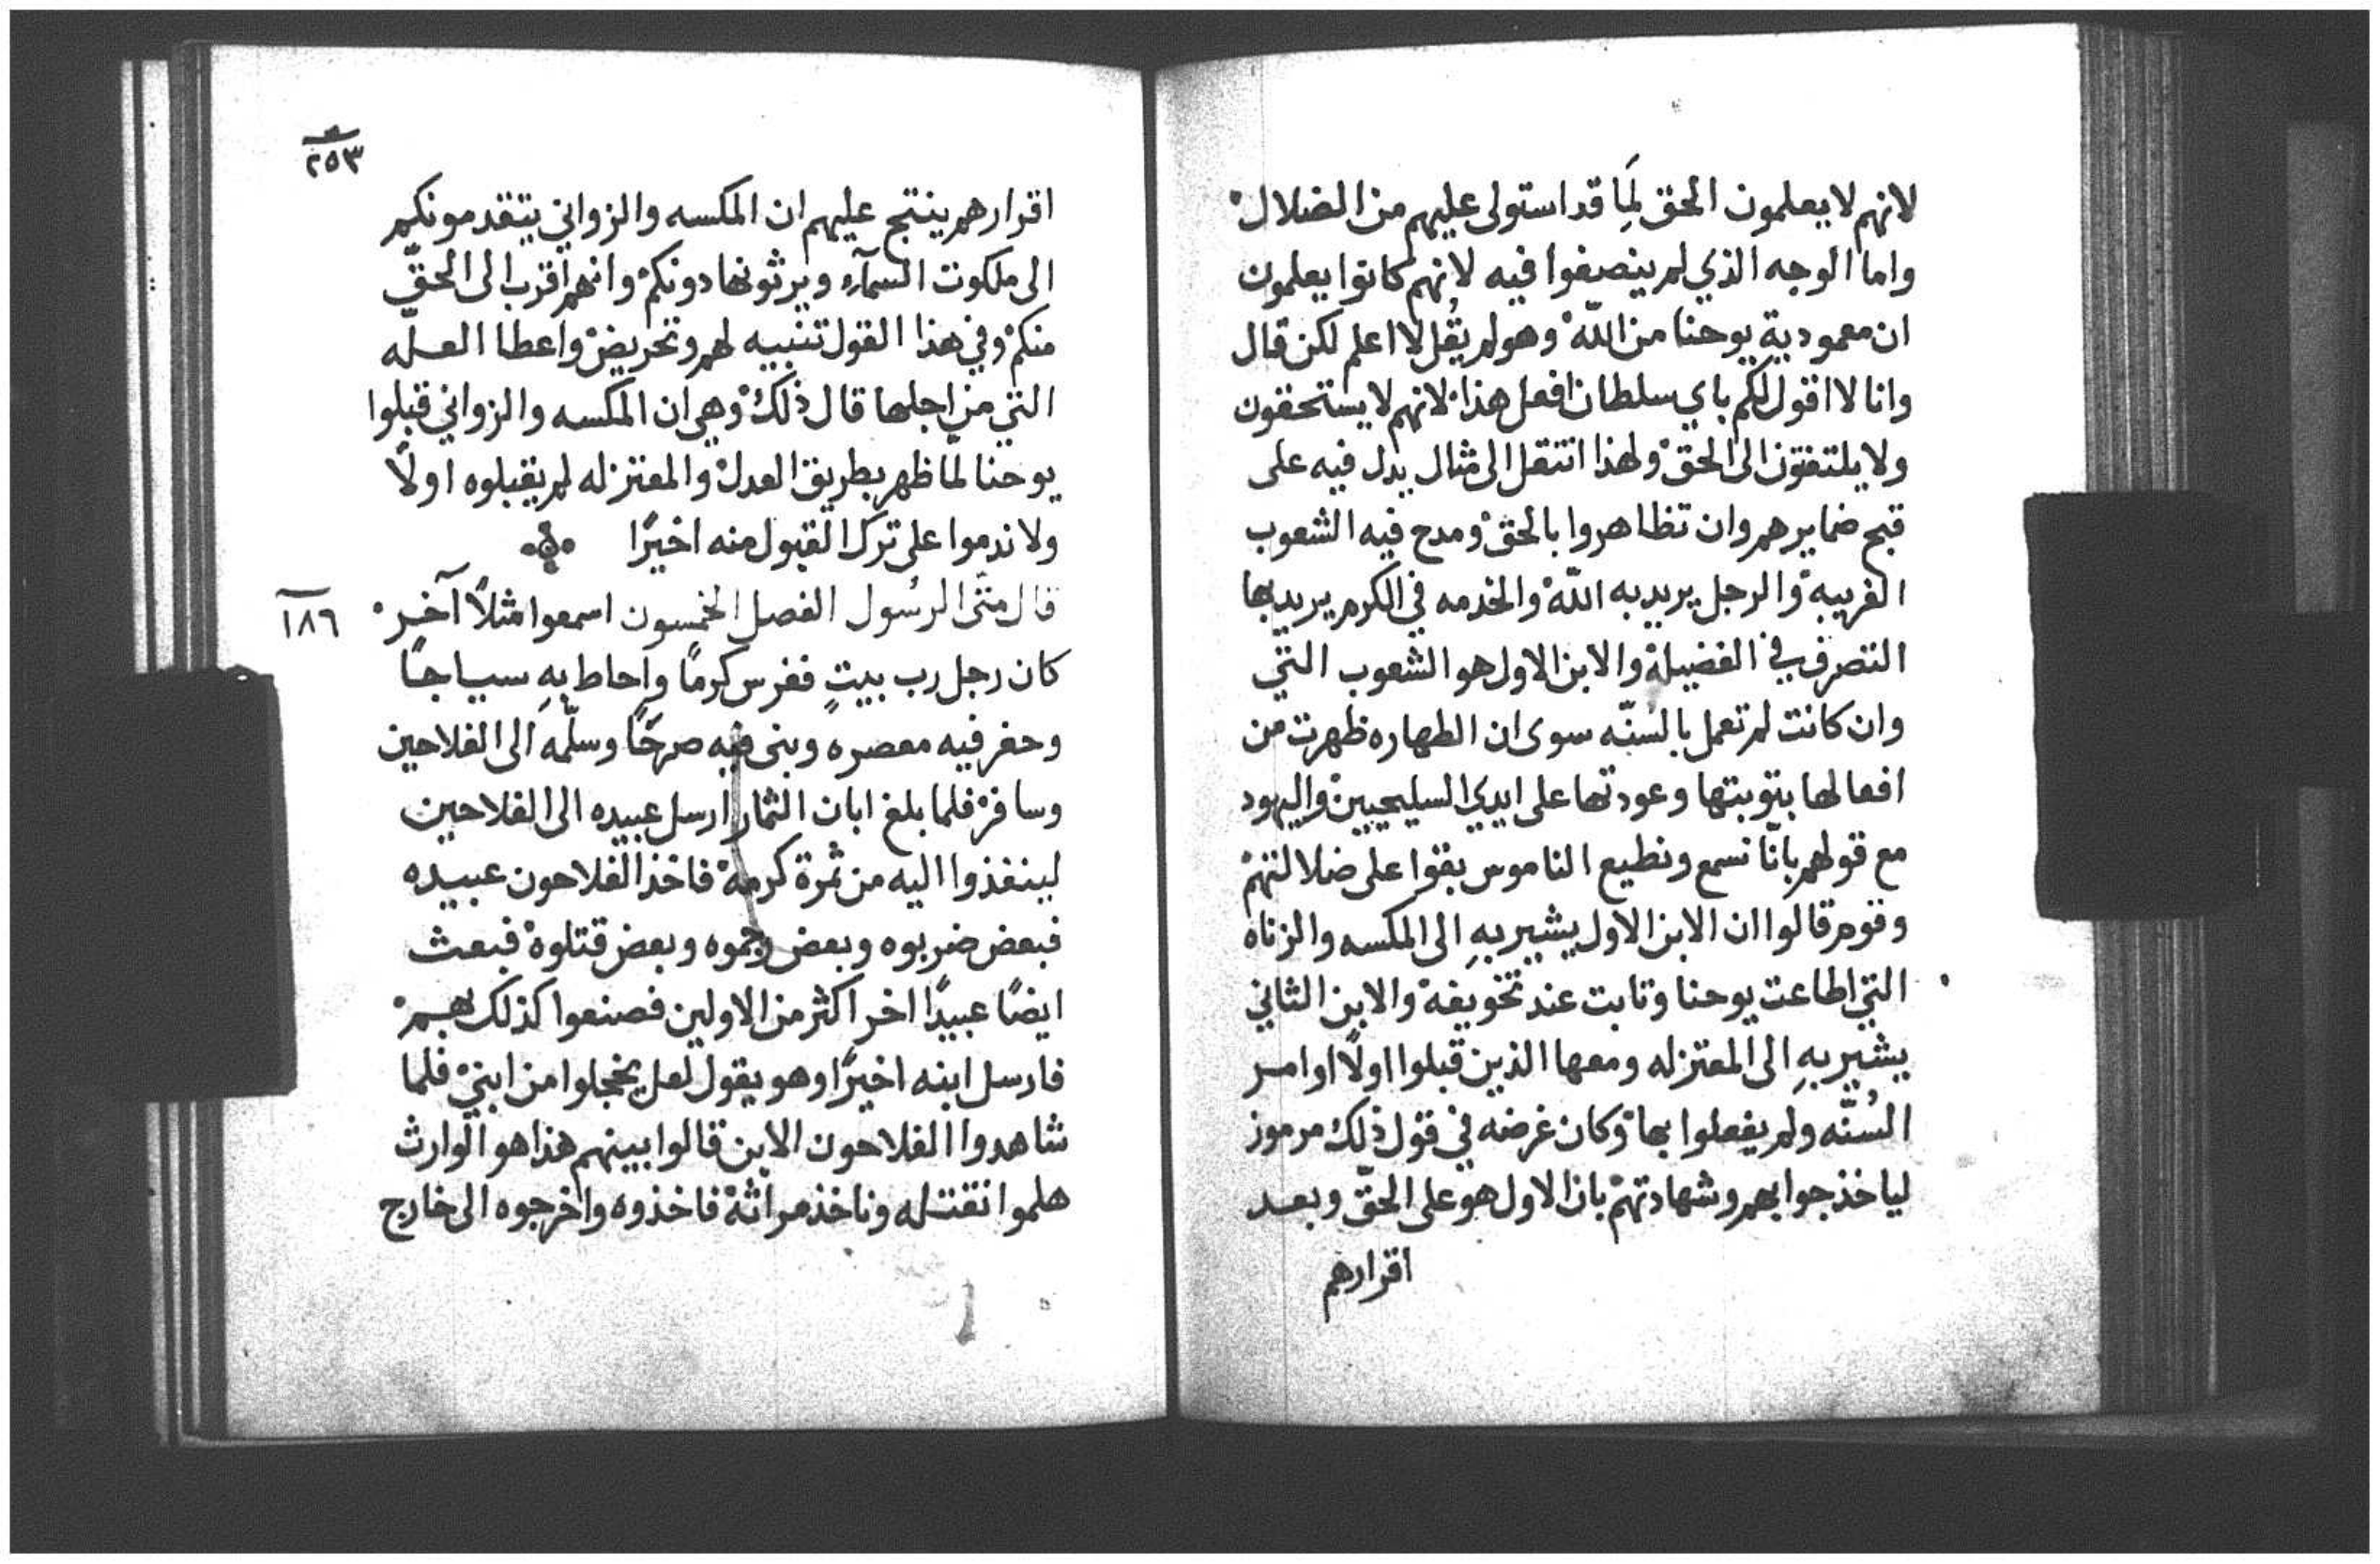 لانهم لا يعلمون الحق لَمِا قد استولى عليهم من الضلال
واما الوجه الذي لم ينصفوا فيه لانهم كانوا يعلمون
ان معمودية يوحنا من اللّه وهو لم يقُل لا اعلم لكن قال
وانا لا اقول لكم باي سلطان افعل هذا لانهم لا يستحقون
ولا يلتفتون الى الحق ولهذا انتقل الى مثال يدل فيه على
قبح ضمايرهم وان تظاهروا بالحق ومدح فيه الشعوب
الغريبه والرجل يريد به اللّه والخدمه في الكرم يريد بها
التصرف في الفضيلة والابن الاول هو الشعوب التي
وان كانت لم تعمل بالسنّه سوى ان الطهاره ظهرت من
افعالها بتوبتها وعودتها على ايدي السليحيين واليهود
مع قولهم بانّا نسمع ونطيع الناموس بقوا على ضلالتهم
وقوم قالوا ان الابن الاول يشير بهِ الى المكسه والزناه
التي اطاعت يوحنا وتابت عند تخويفه والابن الثاني
يشير بهِ الى المعتزله ومعها الذين قبلوا اولًا اوامر
السُنّه ولم يفعلوا بها وكان غرضه في قول ذلك مرموز
لياخذ جوابهم وشهادتهم بان الاول هو على الحقّ وبعد
اقرارهم
٢٥٣
اقرارهم ينتج عليهم ان المكسه والزواني يتقدمونكم
الى ملكوت السمآء ويرثونها دونكم وانهم اقرب الى الحقّ
منكم وفي هذا القول تنبيه لهم وتحريض واعطا العله
التي من اجلها قال ذلك وهي ان المكسه والزواني قبلوا
يوحنا لما ظهر بطريق العدل والمعتزله لم يقبلوه اولًا
ولا ندموا على ترك القبول منه اخيرًا
قال متّى الرسُول الفصل الخمسون اسمعوا مثلًا آخر
١٨٦
كان رجل رب بيتٍ فغرس كرمًا واحاط بهِ سياجًا
وحفر فيه معصره وبنى فيه صرحًا وسلّمه الى الفلاحين
وسافر فلما بلغ ابان الثمار ارسل عبيده الى الفلاحين
لينفذوا اليه من ثمرة كرمه فاخذ الفلاحون عبيده
فبعض ضربوه وبعض رجموه وبعض قتلوه فبعث
ايضًا عبيدًا اخر اكثر من الاولين فصنعوا كذلك بهم
فارسل ابنه اخيرًا وهو يقول لعل يخجلوا من ابني فلما
شاهدوا الفلاحون الابن قالوا بينهم هذا هو الوارث
هلموا نقتله وناخذ مراثه فاخذوه واخرجوه الى خارج